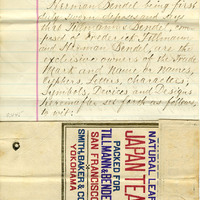 Herman Bendel being first
duly sworn deposes and says
that Tillmann & Bendel, com-
posed of Frederick Tillmann
and Herman Bendel, are the
exclusive owners of the Trade
Mark and Name or Names,
Letters, Characters,
Symbols, Devices and Designs
hereinafter set forth as follows,
to wit:
NATURAL LEAF
JAPAN TEA
PACKED FOR
TILLMANN & BENDEL
SAN FRANCISCO
SMITH BAKER & CO
YOKOHAMA